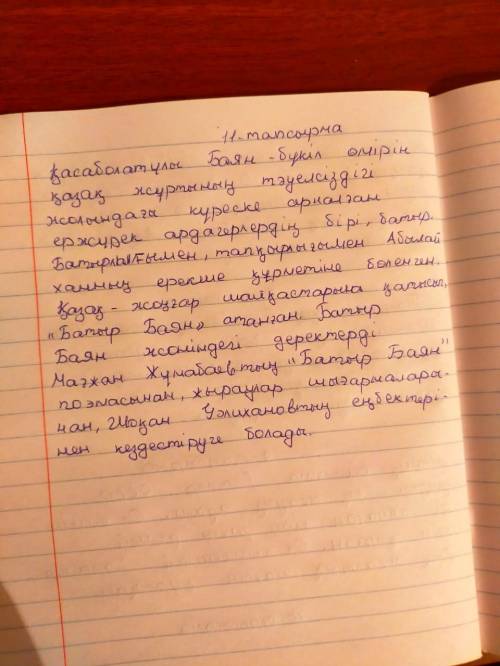 11-тапсырма
Қасаболатұлы Баян - бүкіл өмірін
қазақ жұртының тәуелсіздігі
жолындағы күреске арналған
ержүрек ардагерлердің бірі, батыр.
Батырлығымен, тапқырлығымен Абылай
ханның ерекше құрметіне бөленген.
Қазақ - жоңғар шайқастарына қатысып,
"Батыр Баян" атанған Батыр
Баян жөніндегі деректерді
Мағжан Жұмабаевтың "Батыр Баян"
поэмасынан, жыраулар шығармалары-
нан, Шоқан Уәлихановтың еңбектері-
нен кездестіруге болады.